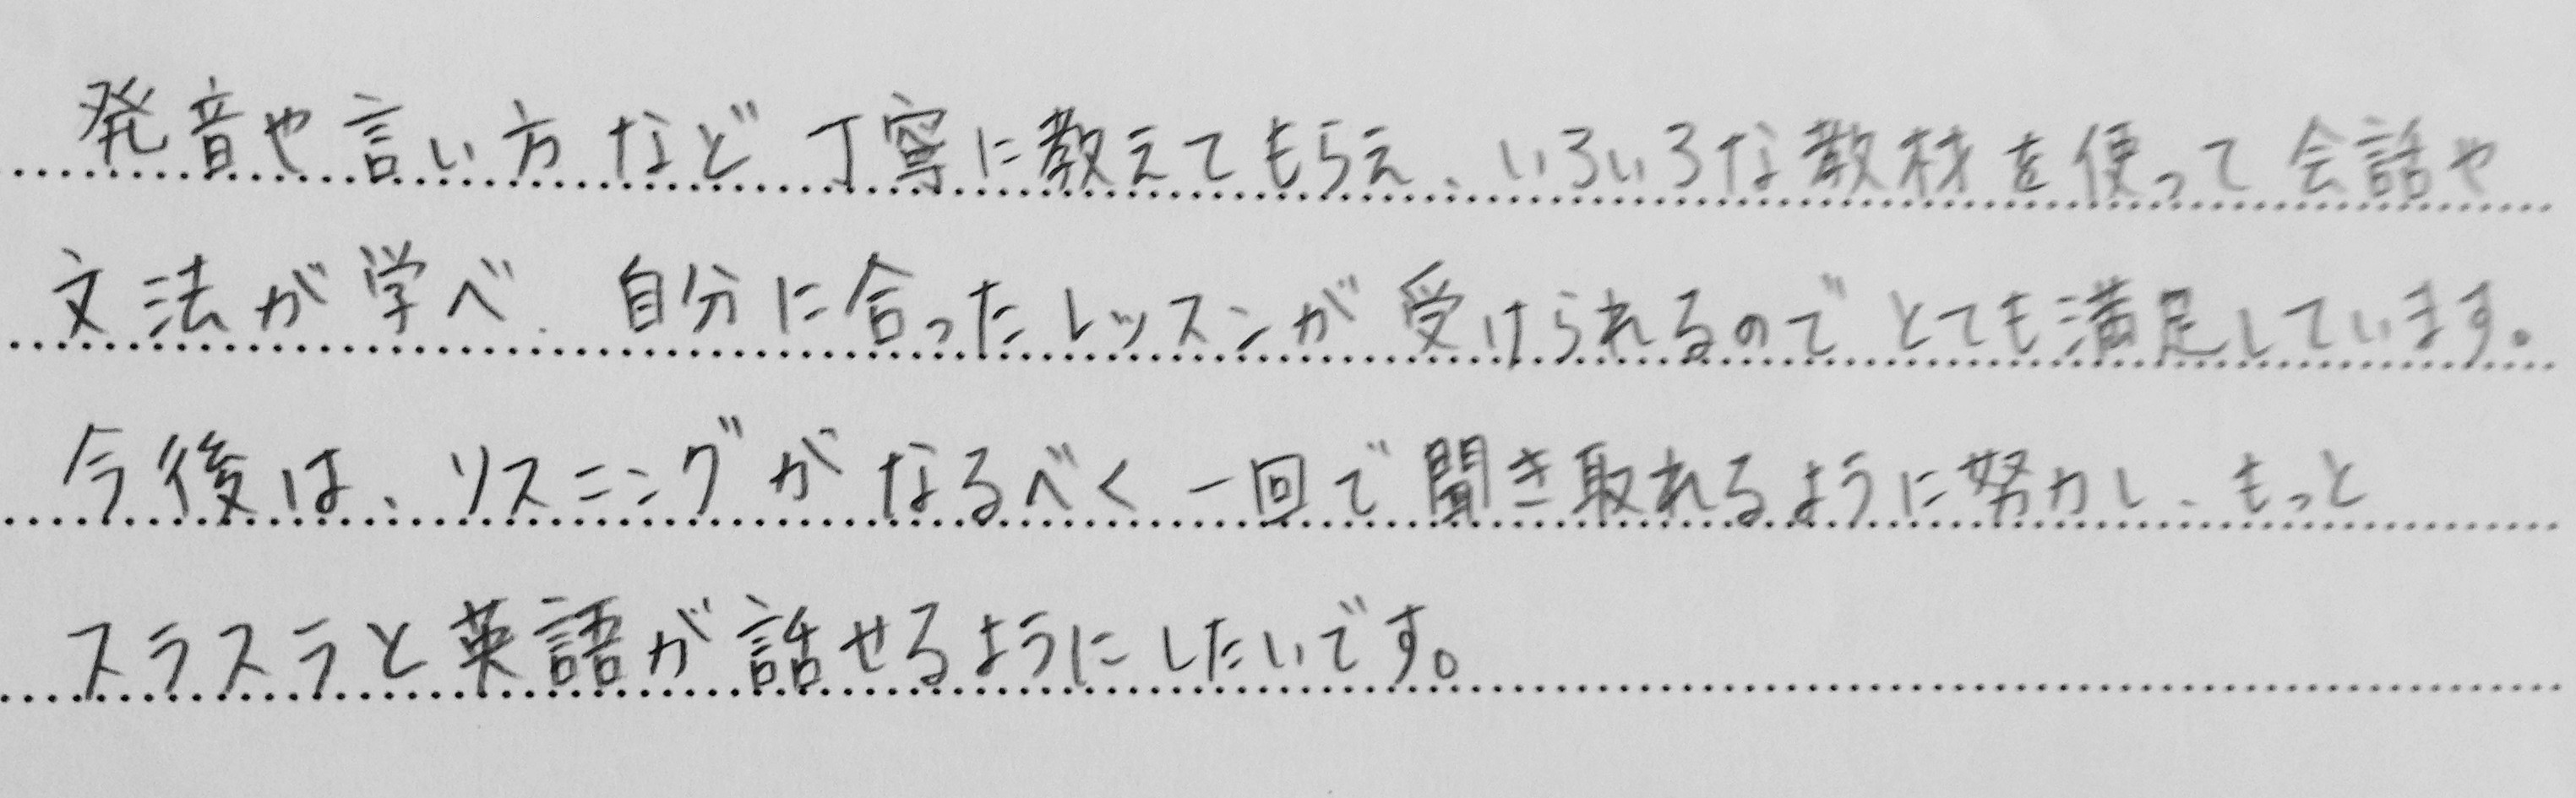 発音や言い方など丁寧に教えてもらえ、いろいろな教材を使って会話や
文法が学べ、自分に合ったレッスンが受けられるのでとても満足しています。
今後は、リスニングがなるべく一回で聞き取れるように努力し、もっと
スラスラと英語が話せるようにしたいです。